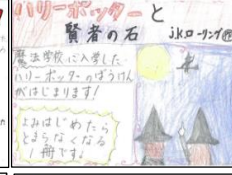 ハリーポッターと
賢者の石
j.k.ローリング作
魔法学校に入学した
ハリーポッターのぼうけん
がはじまります!
よみはじめたら
とまらなくなる
1冊です。